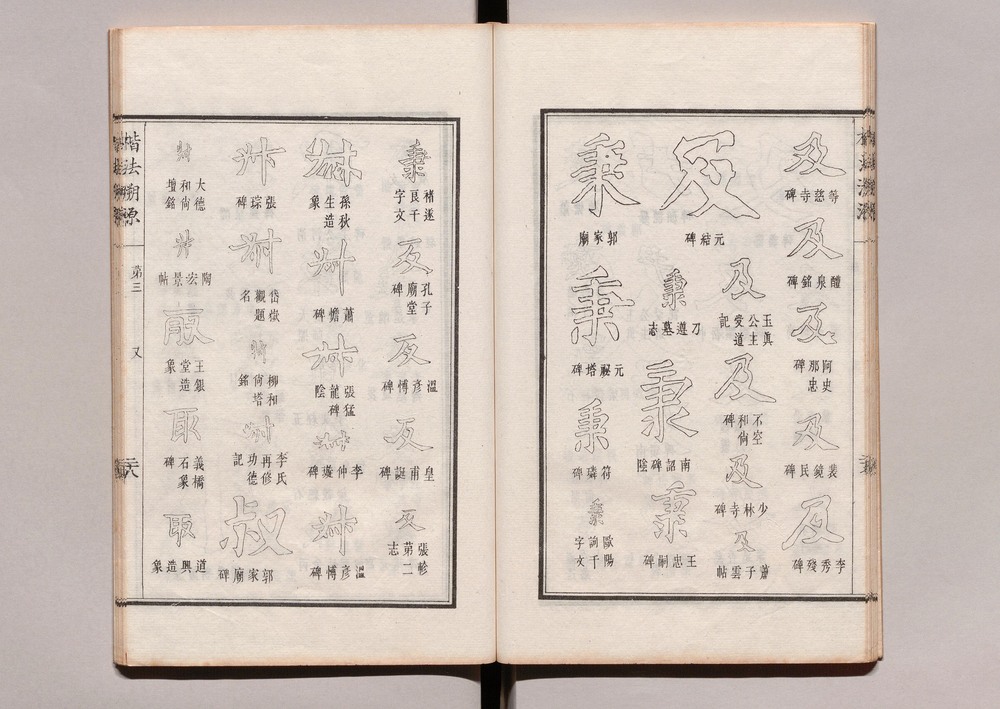 及
等慈寺碑
及
醴泉銘碑
及
阿史那忠碑
及
裴鏡民碑
及
李秀殘碑
及
元結碑
及
玉真公主受道記
及
不空和尚碑
及
少林寺碑
及
蕭子雲帖
秉
刀遵墓志
秉
南詔碑陰
秉
王忠嗣碑
秉
郭家廟
秉
塔碑
秉
符璘碑
秉
歐陽詢千字文
秉
褚遂良千字文
反
孔子廟堂碑
反
溫彥博碑
反
皇甫誕碑
反
張軫第二志
叔
孫秋生造象
叔
蕭憺碑
叔
張猛龍碑陰
叔
李仲璇碑
叔
溫彥博碑
叔
張琮碑
叔
岱嶽觀題名
叔
柳和尚塔銘
叔
李氏再修功德記
叔
郭家廟碑
叔
大德和尚壇銘
叔
陶宏景帖
取
王銀堂造象
取
義橋石象碑
取
道興造象
楷法溯源
第三
又